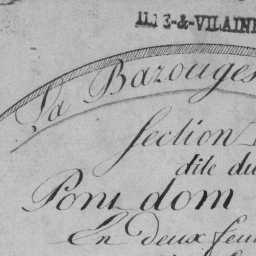 ILLE-&-VILAINE
La Bazouges
Section
dite du
Pont dom
En deux feu